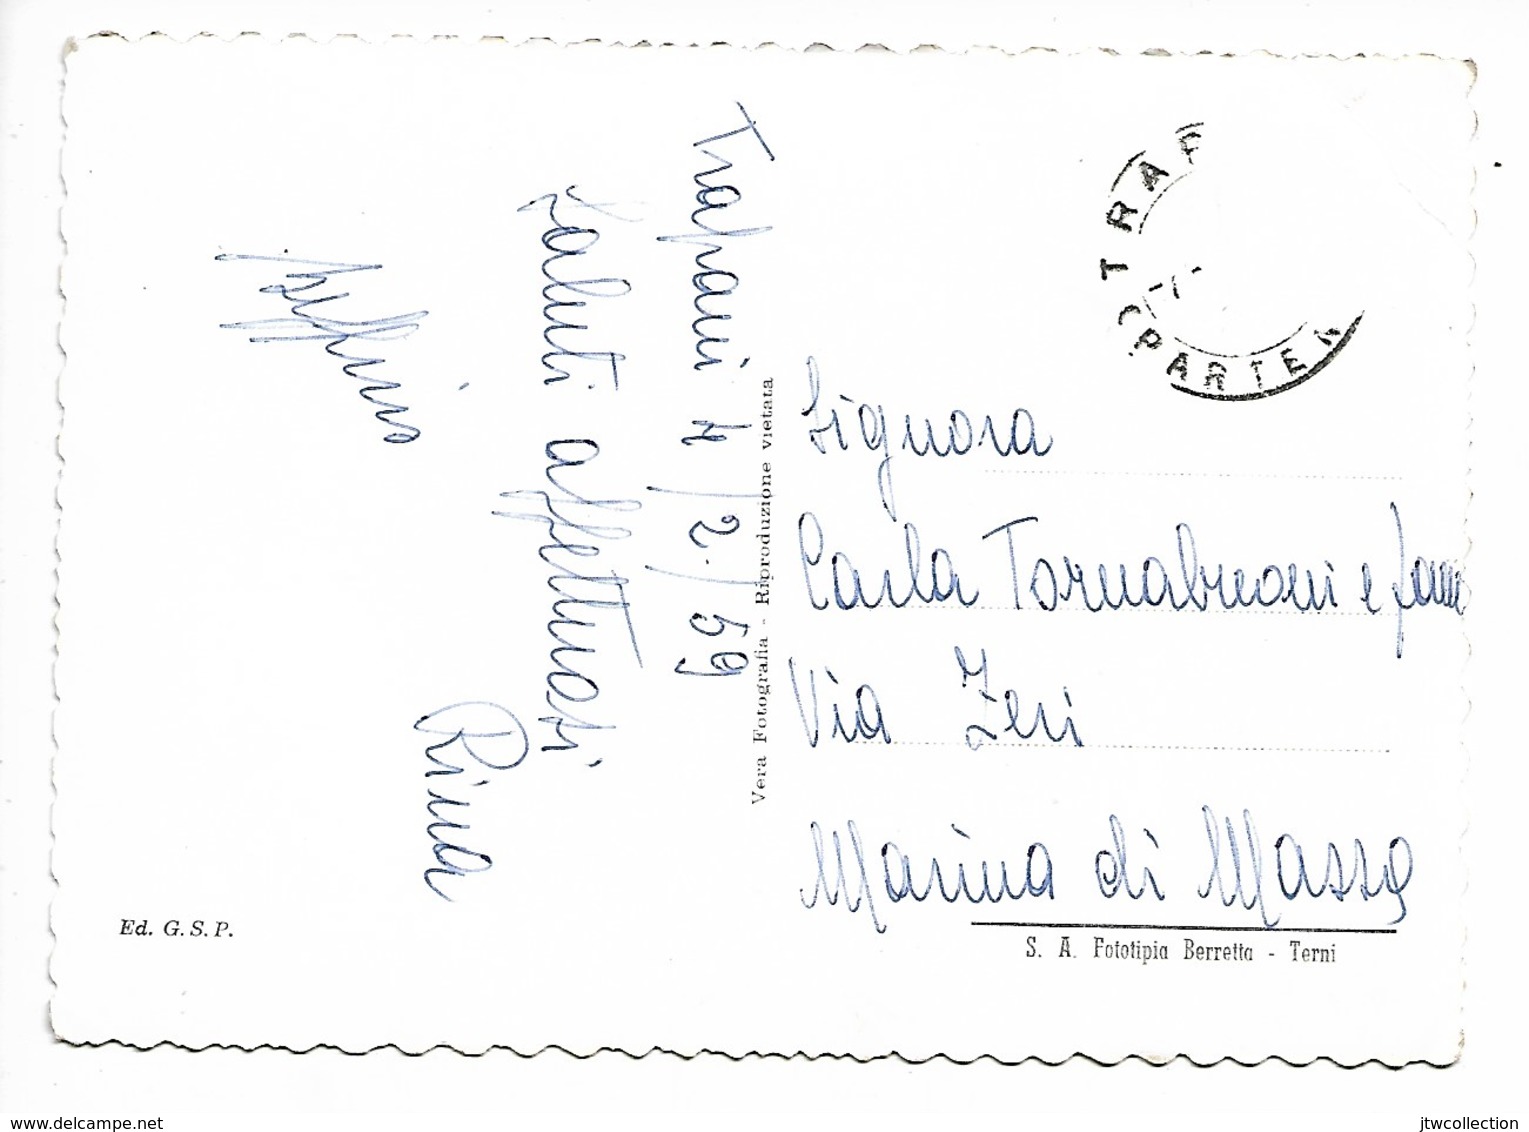 Trapani 4/2/59
Saluti affettuosi
Rina
Vera Fotografia - Riproduzione vietata
TRAP
PARTEN
Signora
Carla Tornabuoni e fam
Via Zeri
Marina di Massa
Ed. G. S. P.
S. A. Fototipia Berretta - Terni
www.delcampe.net
jtwcollection